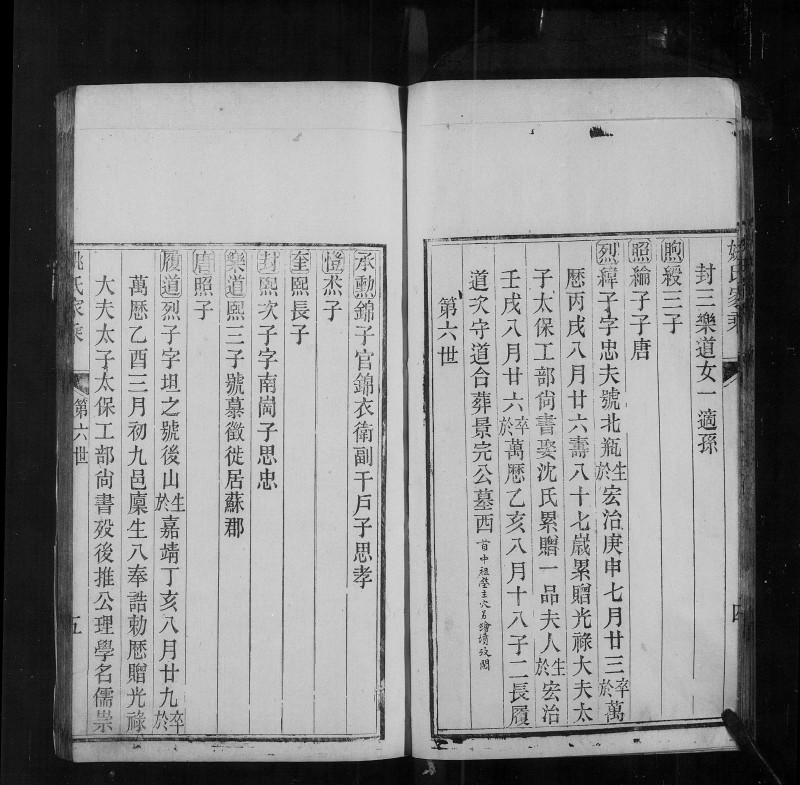 姚氏家乘
四
封三樂道女一適孫
煦綬三子
照綸子子唐
烈緯子字忠夫號北瓶生於宏治庚申七月廿三卒於萬
厯丙戌八月廿六壽八十七歲累贈光祿大夫太
子太保工部尚書娶沈氏累贈一品夫人生於宏治
壬戌八月廿六卒於萬厯乙亥八月十八子二長履
道次守道合葬景完公墓西首中祖塋主穴另繪墳攷閱
第六世
承勲錦子官錦衣衛副千戶子思孝
燈杰子
奎熙長子
封熙次子字南崗子思忠
樂道熙三子號慕徵徙居蘇郡
唐照子
履道烈子字坦之號後山生於嘉靖丁亥八月廿九卒於
萬厯乙酉三月初九邑廩生八奉誥勅厯贈光祿
大夫太子太保工部尚書歿後推公理學名儒祟
姚氏家乘
第六世
五